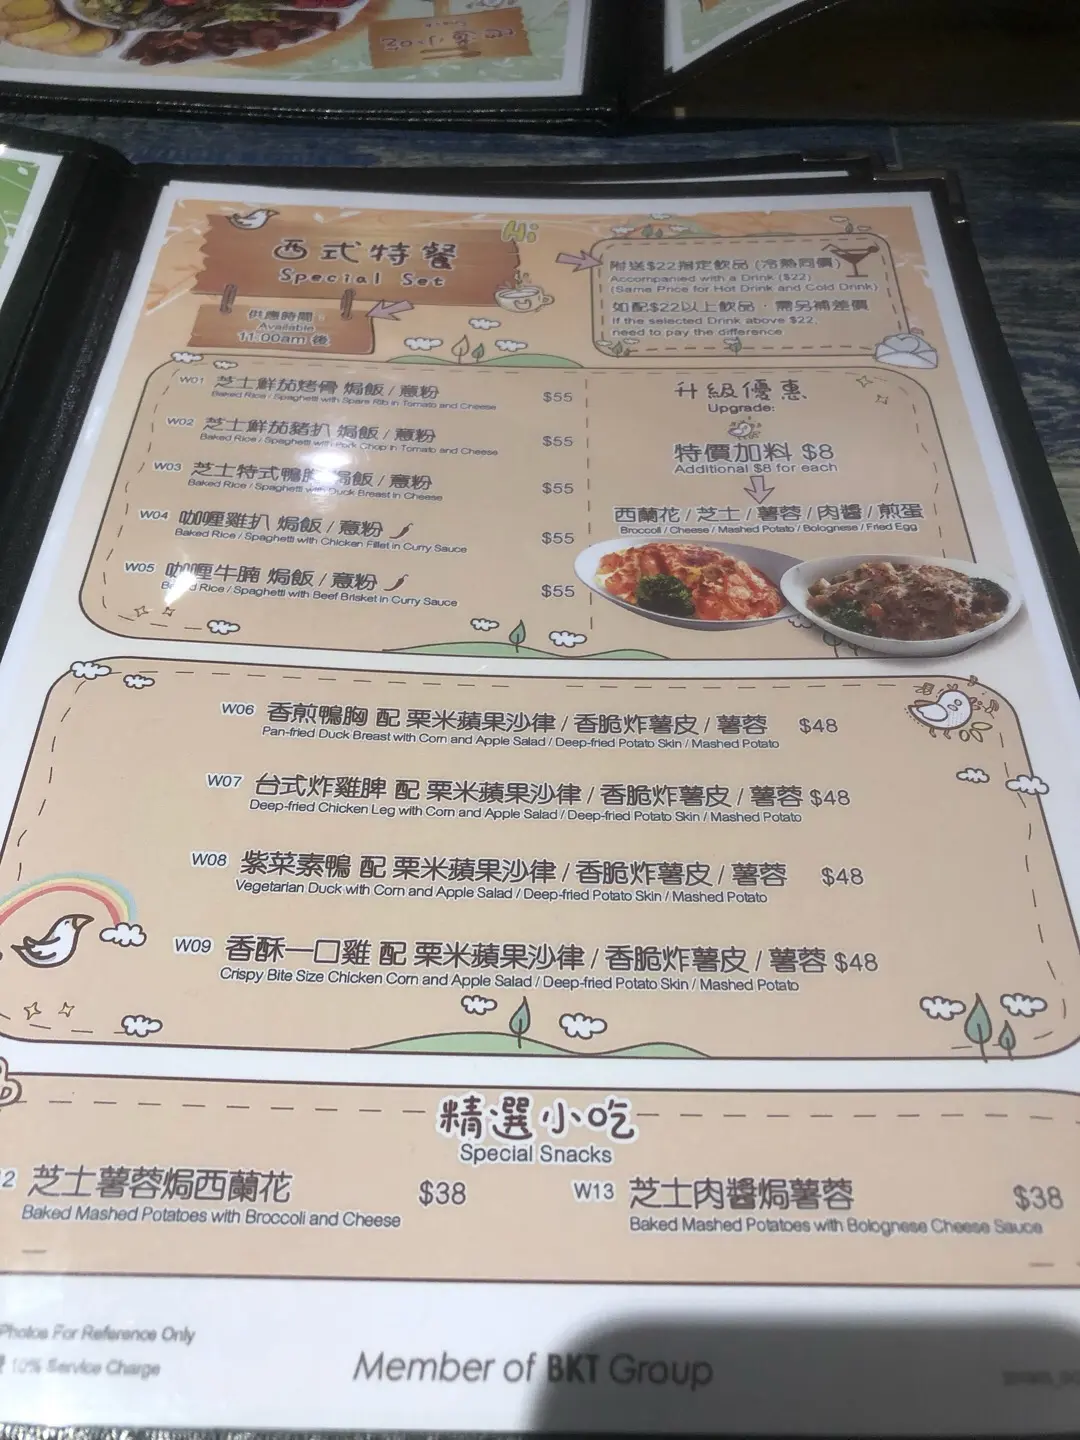 西式特餐
Special Set
Hi
供應時間：
Available
11:00am 後
附送$22指定飲品 (冷熱同價)
Accompanied with a Drink ($22)
(Same Price for Hot Drink and Cold Drink)
如配$22以上飲品，需另補差價
If the selected Drink above $22,
need to pay the difference
W01 芝士鮮茄烤骨 焗飯 / 意粉 $55
Baked Rice / Spaghetti with Spare Rib in Tomato and Cheese
W02 芝士鮮茄豬扒 焗飯 / 意粉 $55
Baked Rice / Spaghetti with Pork Chop in Tomato and Cheese
W03 芝士特式鴨胸 焗飯 / 意粉 $55
Baked Rice / Spaghetti with Duck Breast in Cheese
W04 咖喱雞扒 焗飯 / 意粉 $55
Baked Rice / Spaghetti with Chicken Fillet in Curry Sauce
W05 咖喱牛腩 焗飯 / 意粉 $55
Baked Rice / Spaghetti with Beef Brisket in Curry Sauce
升級優惠
Upgrade:
特價加料 $8
Additional $8 for each
西蘭花 / 芝士 / 薯蓉 / 肉醬 / 煎蛋
Broccoli / Cheese / Mashed Potato / Bolognese / Fried Egg
W06 香煎鴨胸 配 粟米蘋果沙律 / 香脆炸薯皮 / 薯蓉 $48
Pan-fried Duck Breast with Corn and Apple Salad / Deep-fried Potato Skin / Mashed Potato
W07 台式炸雞脾 配 粟米蘋果沙律 / 香脆炸薯皮 / 薯蓉 $48
Deep-fried Chicken Leg with Corn and Apple Salad / Deep-fried Potato Skin / Mashed Potato
W08 紫菜素鴨 配 粟米蘋果沙律 / 香脆炸薯皮 / 薯蓉 $48
Vegetarian Duck with Corn and Apple Salad / Deep-fried Potato Skin / Mashed Potato
W09 香酥一口雞 配 粟米蘋果沙律 / 香脆炸薯皮 / 薯蓉 $48
Crispy Bite Size Chicken Corn and Apple Salad / Deep-fried Potato Skin / Mashed Potato
精選小吃
Special Snacks
2 芝士薯蓉焗西蘭花 $38
Baked Mashed Potatoes with Broccoli and Cheese
W13 芝士肉醬焗薯蓉 $38
Baked Mashed Potatoes with Bolognese Cheese Sauce
Photos For Reference Only
10% Service Charge
Member of BKT Group